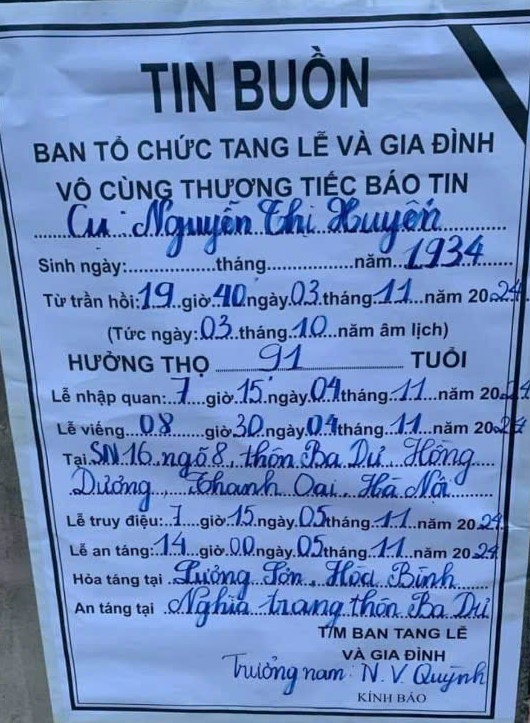 TIN BUỒN
BAN TỔ CHỨC TANG LỄ VÀ GIA ĐÌNH
VÔ CÙNG THƯƠNG TIẾC BÁO TIN
Cụ: Nguyễn Thị Huyến
Sinh ngày:...............tháng...............năm 1934
Từ trần hồi: 19 giờ 40 ngày 03 tháng 11 năm 2024
(Tức ngày: 03 tháng 10 năm âm lịch)
HƯỞNG THỌ 91 TUỔI
Lễ nhập quan: 7 giờ 15 ngày 04 tháng 11 năm 2024
Lễ viếng 08 giờ 30 ngày 04 tháng 11 năm 2024
Tại SN 16 ngõ 8, thôn Ba Dư Hồng
Dương, Thanh Oai, Hà Nội
Lễ truy điệu: 7 giờ 15 ngày 05 tháng 11 năm 2024
Lễ an táng: 14 giờ 00 ngày 05 tháng 11 năm 2024
Hỏa táng tại Lương Sơn, Hòa Bình
An táng tại Nghĩa trang thôn Ba Dư
T/M BAN TANG LỄ
VÀ GIA ĐÌNH
Trưởng nam: N.V. Quỳnh
KÍNH BÁO